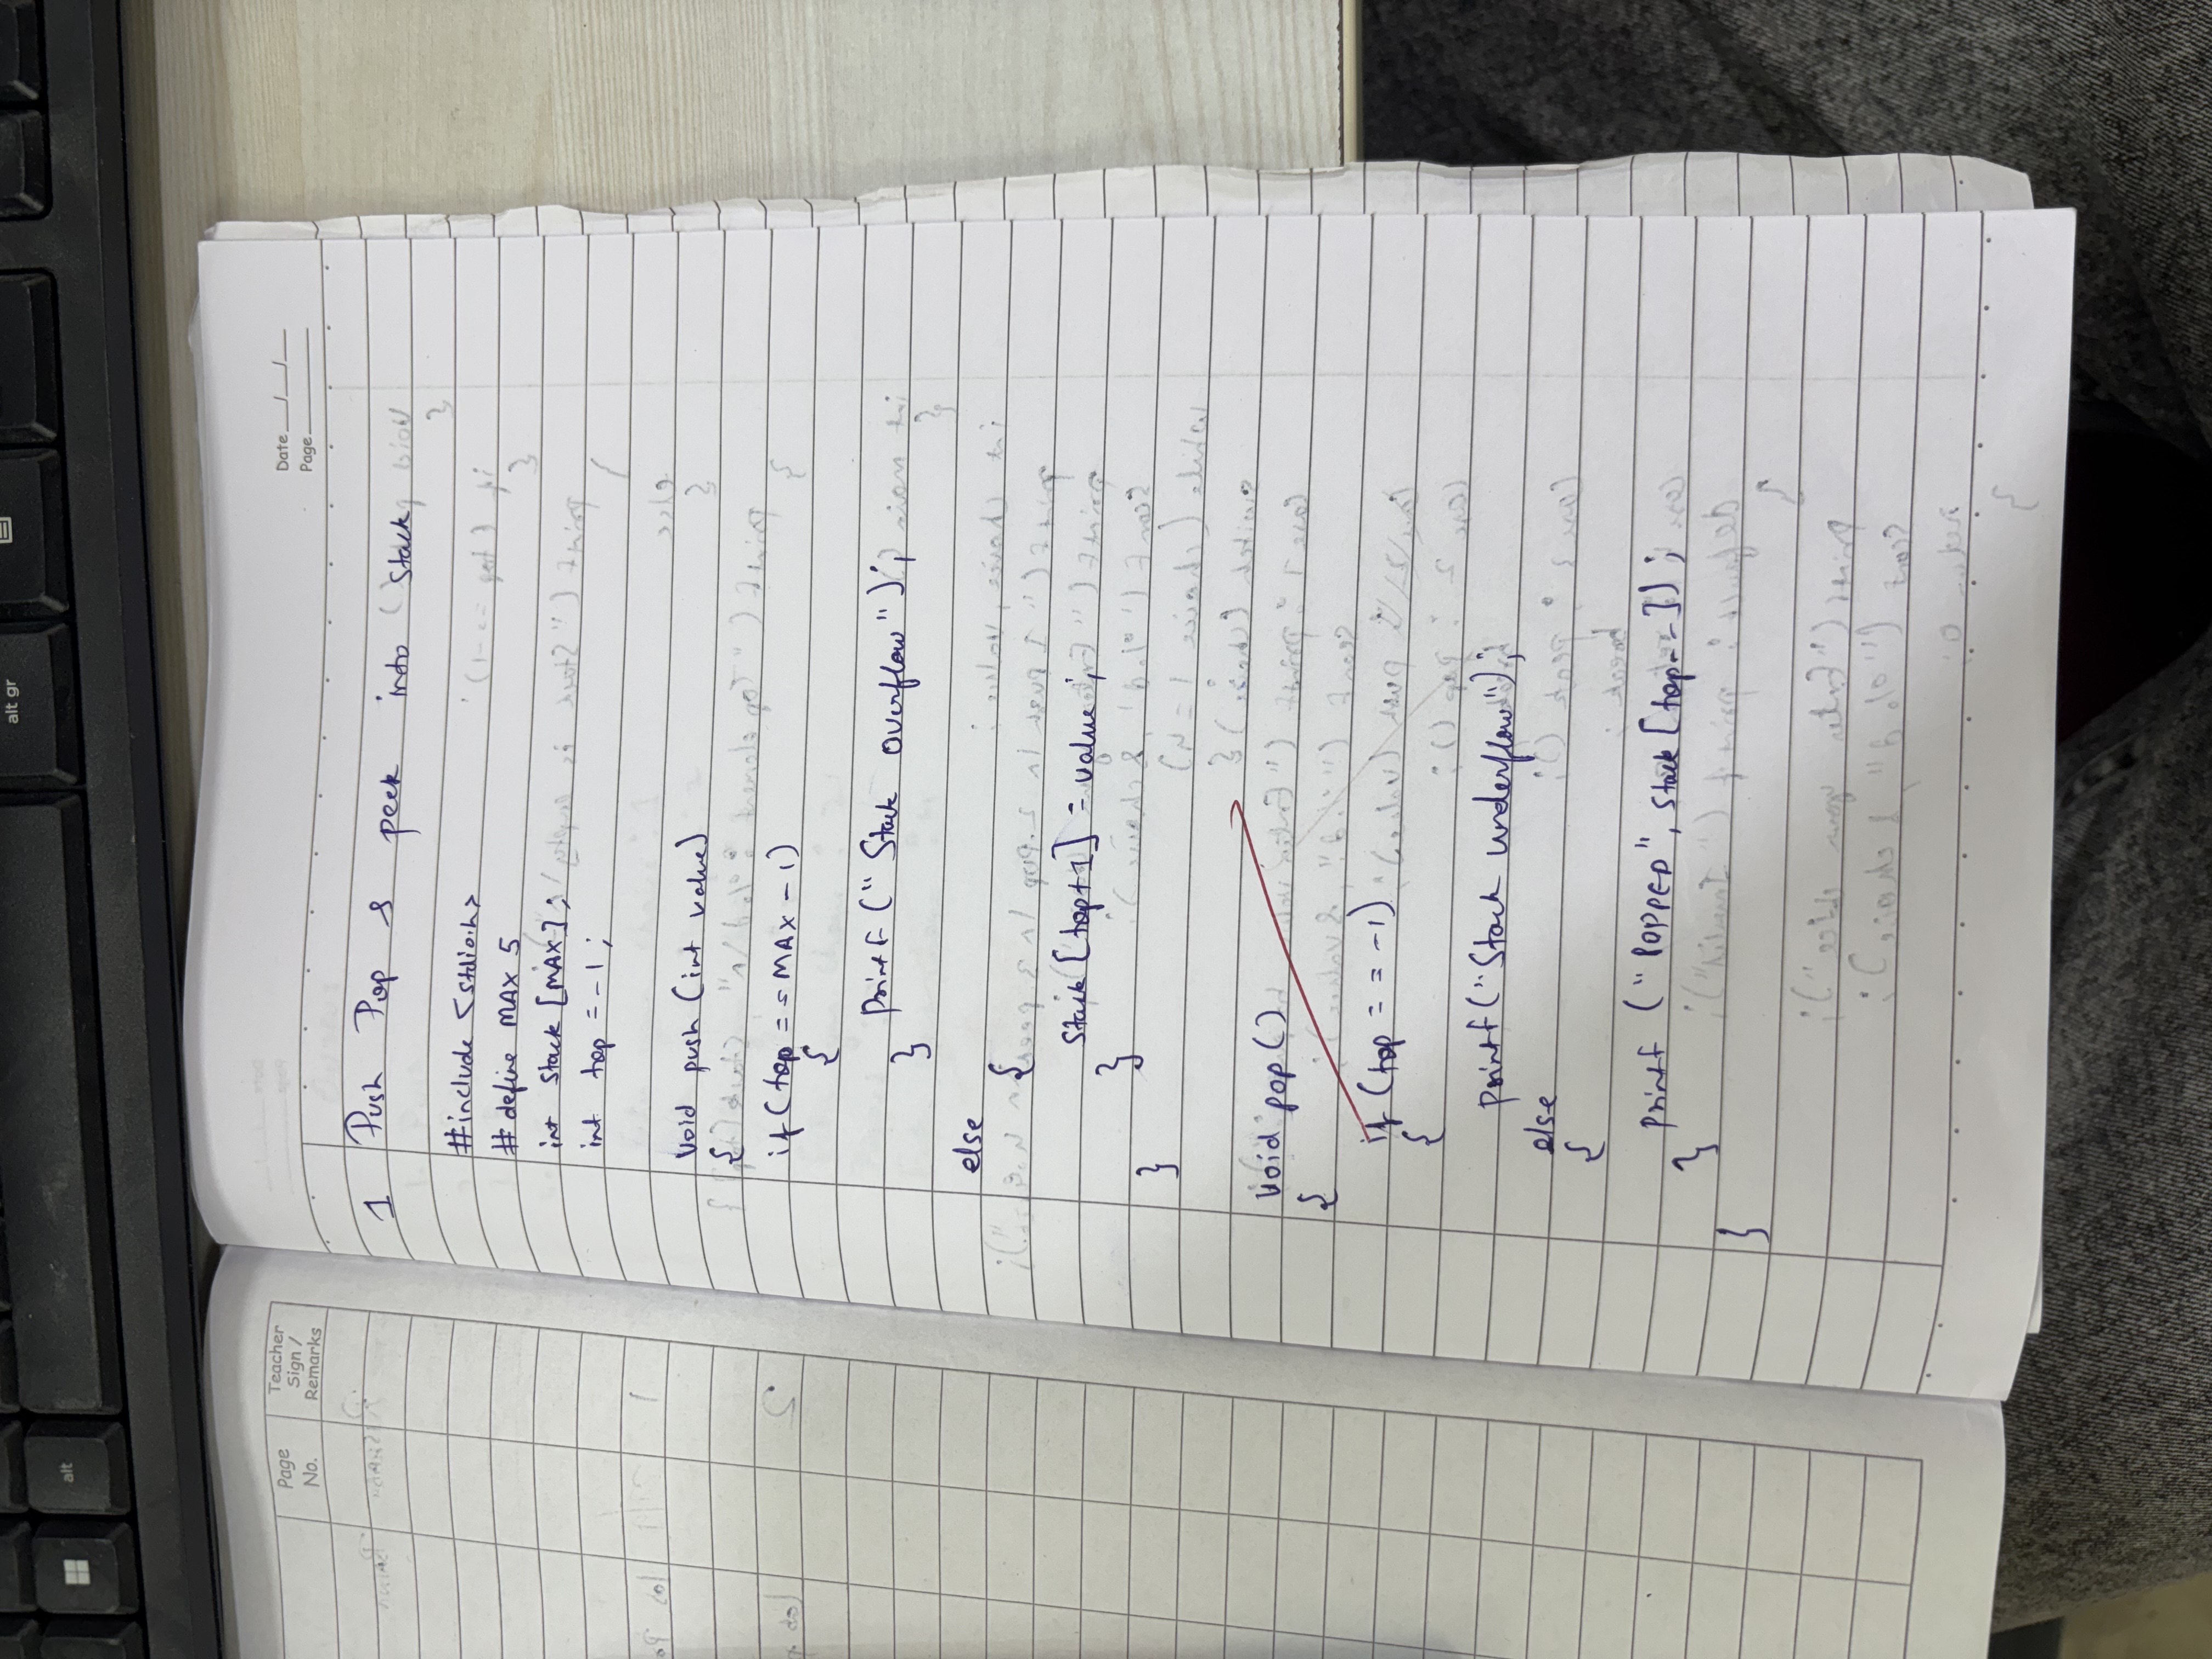 alt gr
alt
Page No.
Teacher Sign / Remarks
Date __/__/__
Page
1 Push Pop & peek into stack
#include <stdio.h>
# define MAX 5
int stack [MAX];
int top = -1;
void push (int value)
{
if (top = = MAX - 1)
{
printf (" Stack overflow");
}
else
{
stack [top+1] = value;
}
}
void pop ()
{
if (top = = -1)
{
printf ("Stack underflow");
else
{
printf ("POPPED", stack [top--]);
}
}